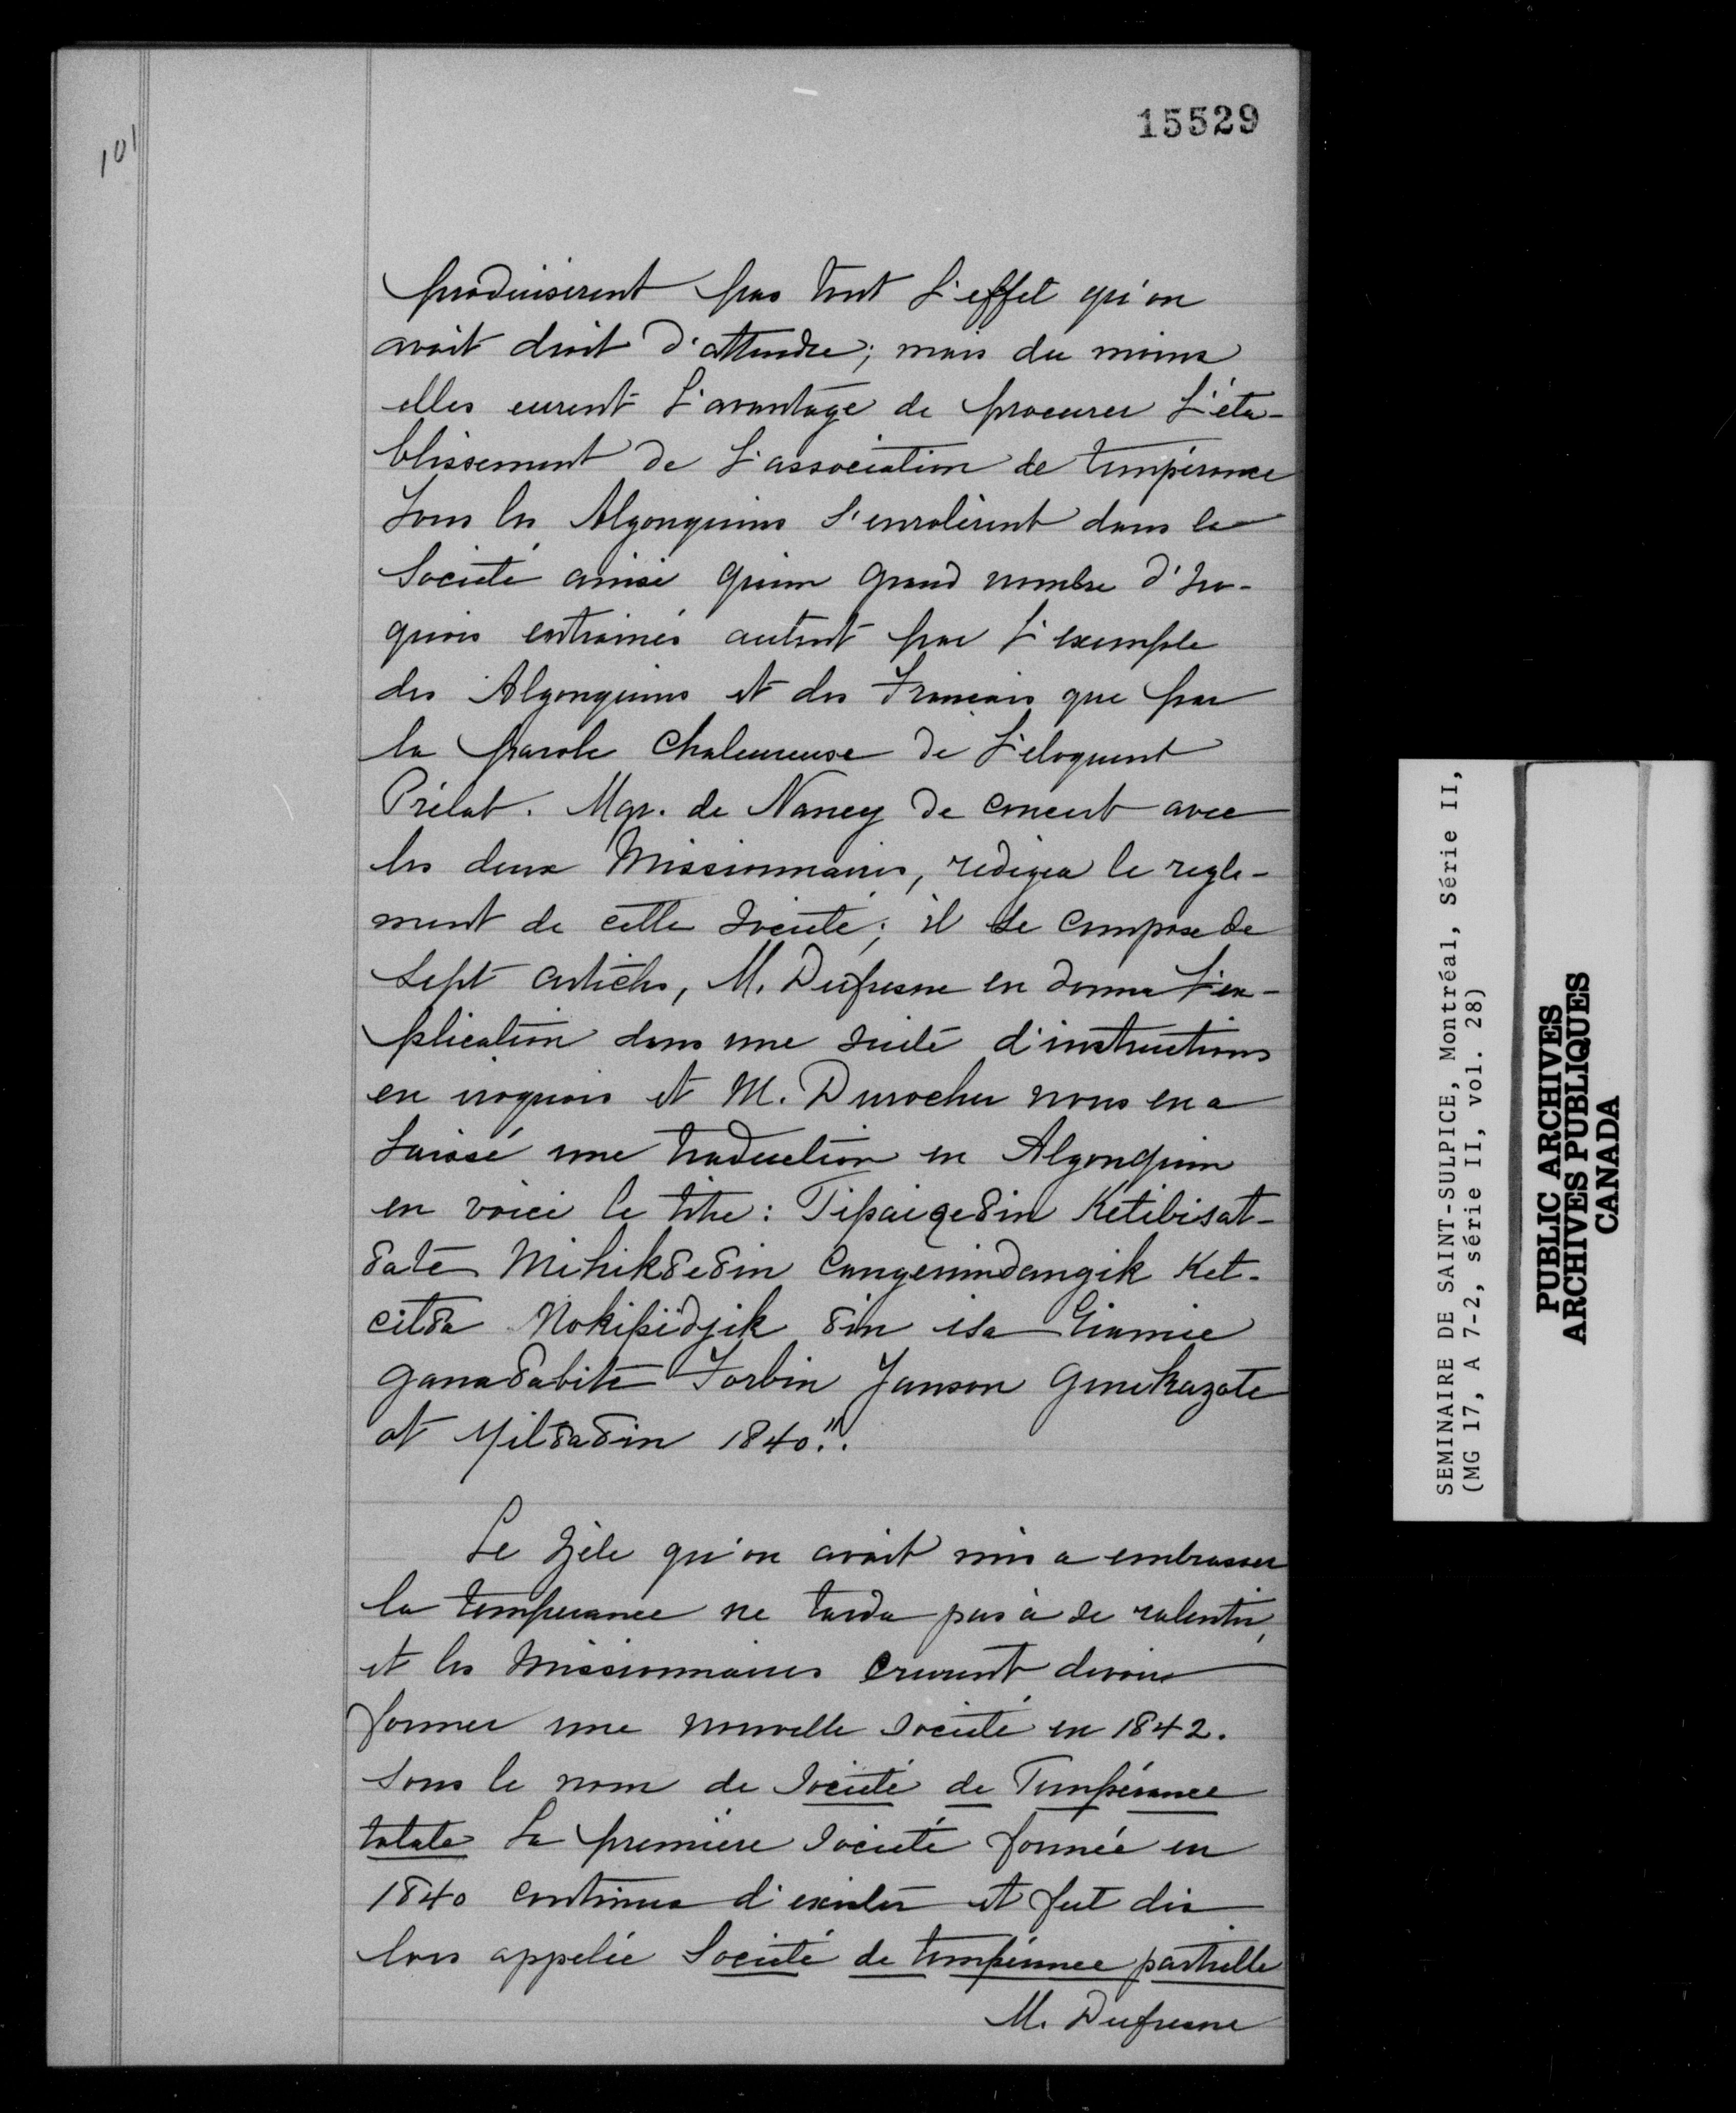 15529
101
produisirent pas tout l'effet qu'on
avait droit d'attendre; mais du moins
elles eurent l'avantage de procurer l'éta-
blissement de l'association de tempérance
Tous les Algonquins s'enrolèrent dans la
Société ainsi qu'un grand nombre d'Iro-
quois entrainés autant par l'exemple
des Algonquins et des Francais que par
la parole chaleureuse de l'eloquent
Prélat. Mgr. de Nancy de concert avec
les deux Missionnaires, redigea le regle-
ment de cette société; il se compose de
sept articles, M. Dufresne en donna l'ex-
plication dans une suite d'instructions
en iroquois et M. Durocher nous en a
laissé une traduction en Algonquin
en voici le titre: Tipaige8in Ketibisat-
8ate Mihik8e8in Cangenindangik Ket-
cit8a Mokipidjik 8in isa
gana8abite Forbin Janson
at 1840".
Le zèle qu'on avait mis a embrasser
la temperance ne tarda pas à se ralentir,
et les Missionnaires crurent devoir
former une nouvelle société en 1842.
sous le nom de Société de Tempérance
totale La première Société formée en
1840 continua d'exister et fut dès
lors appelée Société de tempérance partielle
M. Dufresne
SEMINAIRE DE SAINT-SULPICE, Montréal, Série II,
(MG 17, A 7-2, série II, vol. 28)
PUBLIC ARCHIVES
ARCHIVES PUBLIQUES
CANADA